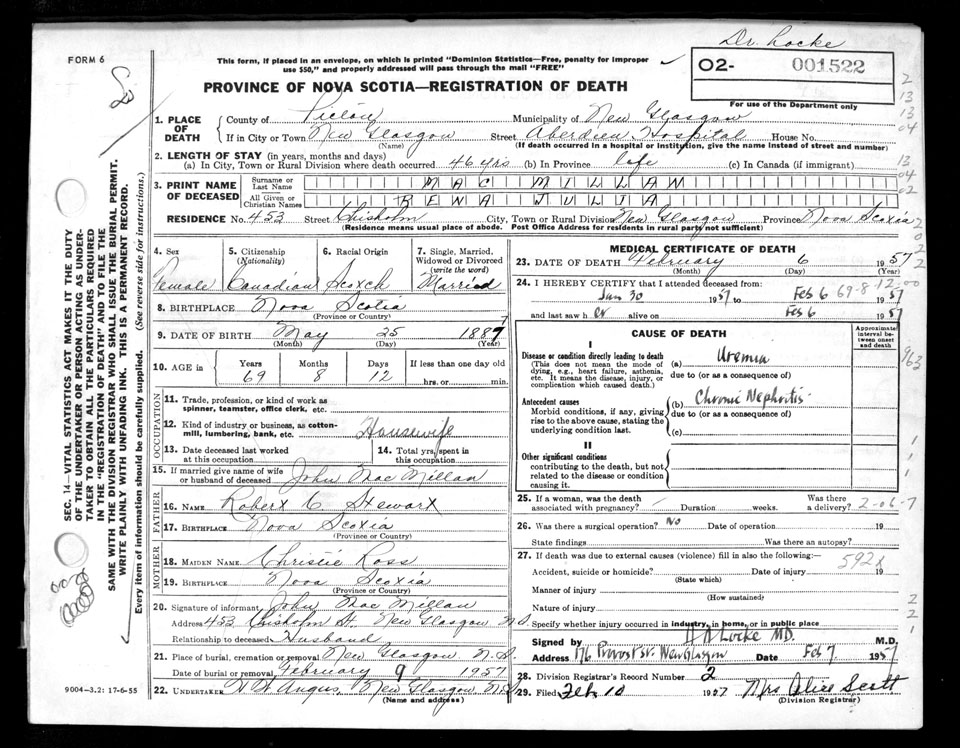 Dr. Locke
FORM 6
This form, if placed in an envelope, on which is printed "Dominion Statistics—Free, penalty for improper
use $50," and properly addressed will pass through the mail "FREE"
O2- 001522
For use of the Department only
PROVINCE OF NOVA SCOTIA—REGISTRATION OF DEATH
1. PLACE OF DEATH
County of Pictou Municipality of New Glasgow
If in City or Town New Glasgow Street Aberdeen Hospital House No.
(Name) (If death occurred in a hospital or institution, give the name instead of street and number)
2. LENGTH OF STAY (in years, months and days)
(a) In City, Town or Rural Division where death occurred 46 yrs (b) In Province life (c) In Canada (if immigrant)
3. PRINT NAME OF DECEASED
Surname or Last Name MAC MILLAN
All Given or Christian Names RENA JULIA
RESIDENCE No. 453 Street Chisholm City, Town or Rural Division New Glasgow Province Nova Scotia
(Residence means usual place of abode. Post Office Address for residents in rural parts not sufficient)
4. Sex 5. Citizenship 6. Racial Origin 7. Single, Married,
(Nationality) Widowed or Divorced
(write the word)
Female Canadian Scotch Married
8. BIRTHPLACE Nova Scotia
(Province or Country)
9. DATE OF BIRTH May 25 1887
(Month) (Day) (Year)
10. AGE in Years Months Days If less than one day old
69 8 12 hrs. or min.
OCCUPATION
11. Trade, profession, or kind of work as
spinner, teamster, office clerk, etc.
12. Kind of industry or business, as cotton-
mill, lumbering, bank, etc. Housewife
13. Date deceased last worked 14. Total yrs. spent in
at this occupation this occupation
15. If married give name of wife
or husband of deceased John MacMillan
FATHER
16. NAME Robert C. Stewart
17. BIRTHPLACE Nova Scotia
(Province or Country)
MOTHER
18. MAIDEN NAME Christie Ross
19. BIRTHPLACE Nova Scotia
(Province or Country)
20. Signature of informant John MacMillan
Address 453 Chisholm St. New Glasgow N.S.
Relationship to deceased Husband
21. Place of burial, cremation or removal New Glasgow N.S.
Date of burial or removal February 9 1957
22. UNDERTAKER New Glasgow, N.S.
(Name and address)
MEDICAL CERTIFICATE OF DEATH
23. DATE OF DEATH February 6 1957
(Month) (Day) (Year)
24. I HEREBY CERTIFY that I attended deceased from:
Jan 30 1957 to Feb 6 1957
69-8-12-00
and last saw her alive on Feb 6 1957
CAUSE OF DEATH
Approximate interval between onset and death
I
Disease or condition directly leading to death
(This does not mean the mode of
dying, e.g., heart failure, asthenia,
etc. It means the disease, injury, or
complication which caused death.)
(a) Uremia
due to (or as a consequence of)
Antecedent causes
Morbid conditions, if any, giving
rise to the above cause, stating the
underlying condition last.
(b) Chronic Nephritis
due to (or as a consequence of)
(c)
II
Other significant conditions
contributing to the death, but not
related to the disease or condition
causing it.
25. If a woman, was the death Was there
associated with pregnancy? Duration weeks. a delivery? 2-06-7
26. Was there a surgical operation? No Date of operation 19
State findings Was there an autopsy?
27. If death was due to external causes (violence) fill in also the following:—
592x
Accident, suicide or homicide? Date of injury 19
(State which)
Manner of injury
(How sustained)
Nature of injury
Specify whether injury occurred in industry, in home, or in public place
Signed by Locke MD. M.D.
Address 176 Provost St. New Glasgow Date Feb 7 1957
28. Division Registrar's Record Number 2
29. Filed Feb 10 1957 Mrs Alice Scott
(Division Registrar)
SEC. 14—VITAL STATISTICS ACT MAKES IT THE DUTY
OF THE UNDERTAKER OR PERSON ACTING AS UNDER-
TAKER TO OBTAIN ALL THE PARTICULARS REQUIRED
IN THE "REGISTRATION OF DEATH" AND TO FILE THE
SAME WITH THE DIVISION REGISTRAR WHO SHALL ISSUE THE BURIAL PERMIT.
WRITE PLAINLY WITH UNFADING INK. THIS IS A PERMANENT RECORD.
Every item of information should be carefully supplied. (See reverse side for instructions.)
9004—3.2: 17-6-55
2
13
13
04
13
04
02
2
0
2
2
963
1
1
1
2
2
1